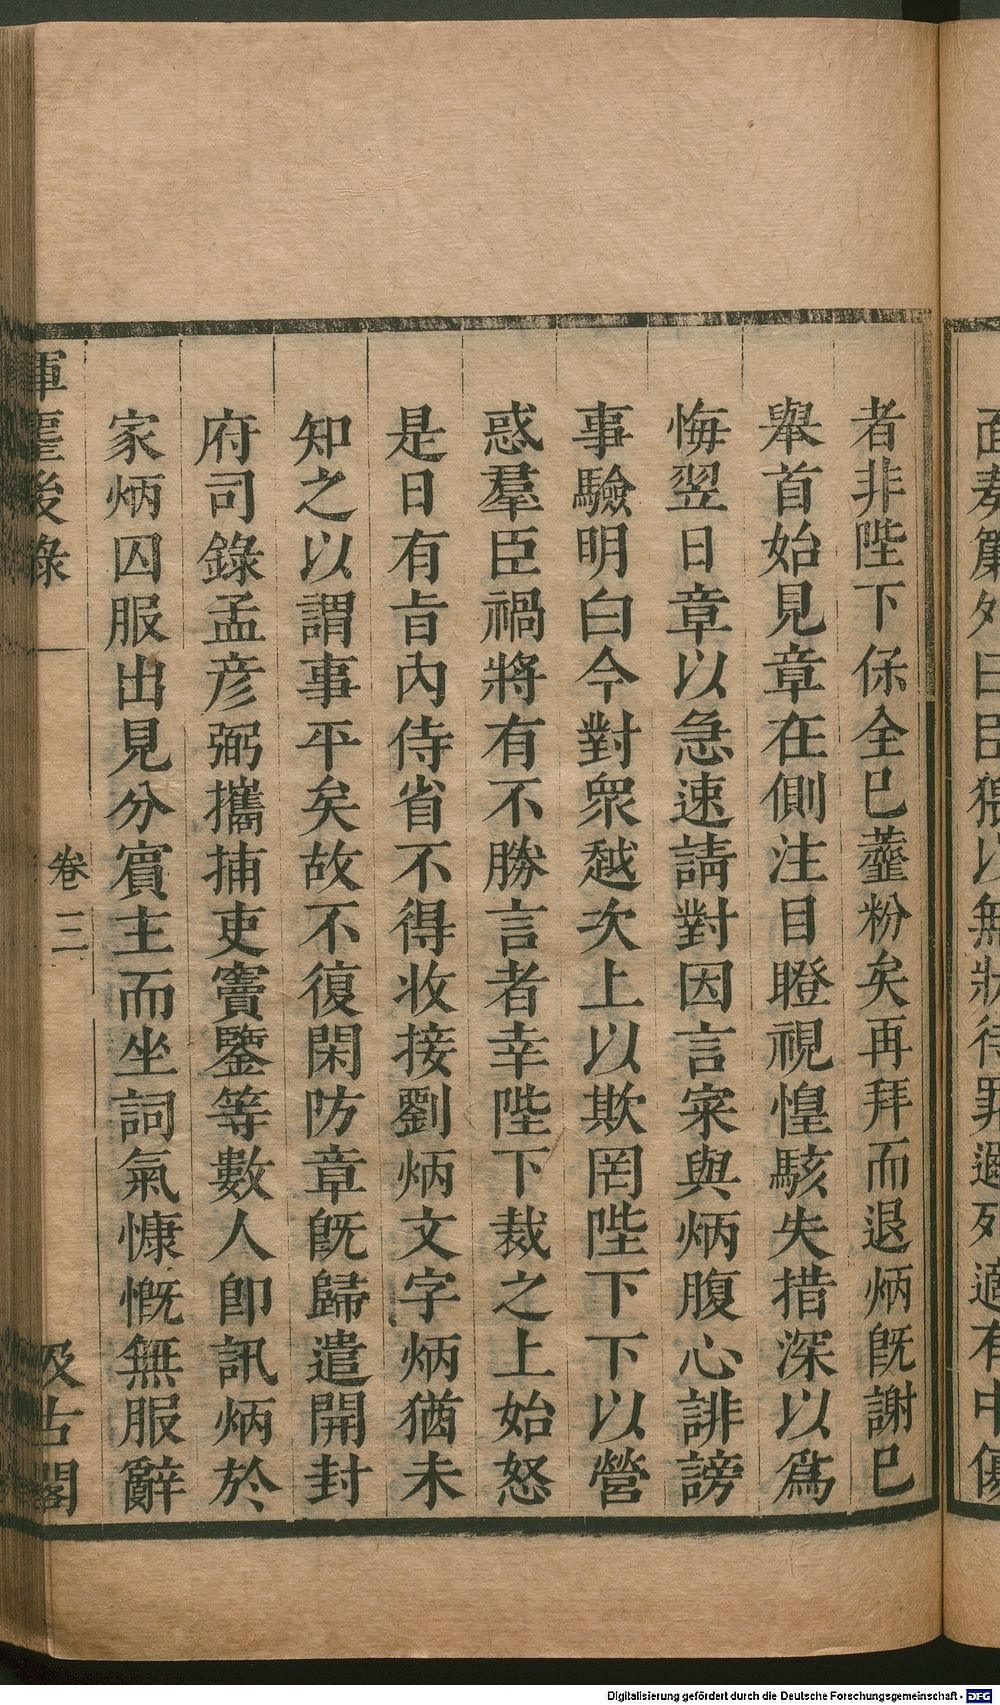 面奏簾外曰臣猥以無狀待罪邇列適有中傷
者非陛下保全已虀粉矣再拜而退炳旣謝已
舉首始見章在側注目瞪視惶駭失措深以爲
悔翌日章以急速請對因言寀與炳腹心誹謗
事驗明白今對眾越次上以欺罔陛下下以營
惑羣臣禍將有不勝言者幸陛下裁之上始怒
是日有旨內侍省不得收接劉炳文字炳猶未
知之以謂事平矣故不復閑防章旣歸遣開封
府司錄孟彦弼攜捕吏竇鑒等數人卽訊炳於
家炳囚服出見分賓主而坐詞氣慷慨無服辭
揮麈後錄
卷三
汲古閣
Digitalisierung gefördert durch die Deutsche Forschungsgemeinschaft - DFG